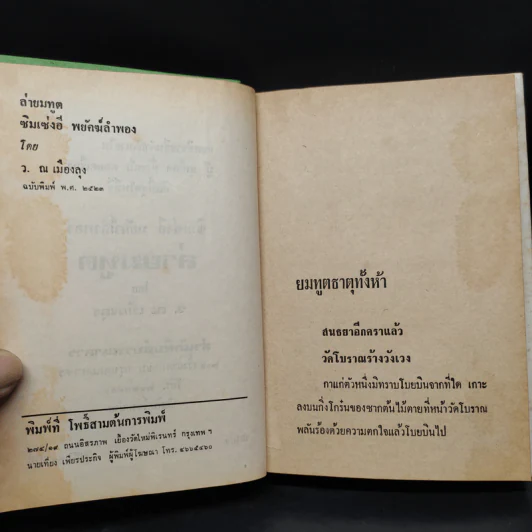 ล่ายมทูต
ซิมเซ่งอี พยัคฆ์ลำพอง
โดย
ว. ณ เมืองลุง
ฉบับพิมพ์ พ.ศ. ๒๕๒๓
พิมพ์ที่ โพธิ์สามต้นการพิมพ์
๒๗๔/๑๙ ถนนอิสรภาพ เยื้องวัดใหม่พิเรนทร์ กรุงเทพ ฯ
นายเที่ยง เพียรประกิจ ผู้พิมพ์ผู้โฆษณา โทร. ๔๖๕๔๕๖๐
ยมทูตธาตุทั้งห้า
สนธยาอีกคราแล้ว
วัดโบราณร้างวังเวง
กาแก่ตัวหนึ่งมิทราบโบยบินจากที่ใด เกาะ
ลงบนกิ่งโกร๋นของซากต้นไม้ตายที่หน้าวัดโบราณ
พลันร้องด้วยความตกใจแล้วโบยบินไป